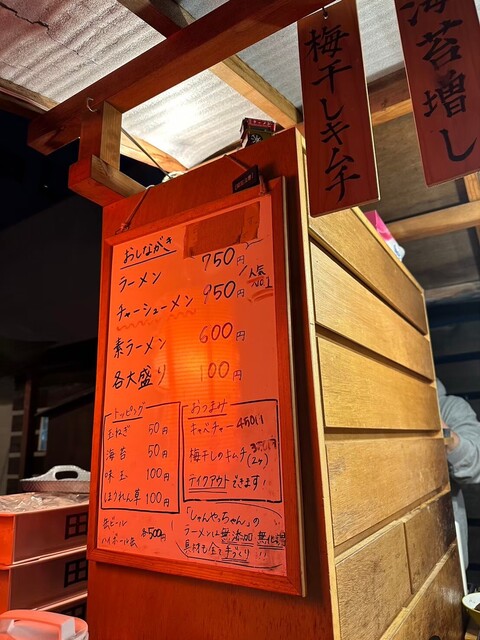 梅干しキムチ
海苔増し
おしながき
ラーメン 750円
チャーシューメン 950円 人気No.1
素ラーメン 600円
各大盛り 100円
トッピング
玉ねぎ 50円
海苔 50円
味玉 100円
ほうれん草 100円
おつまみ
キャベチャー 450円
梅干しのキムチ 350円
(2ヶ)
テイクアウトできます
缶ビール
ハイボール缶 各500円
「しゃんやっちゃん」の
ラーメンは無添加 無化調
具材も全て手づくり